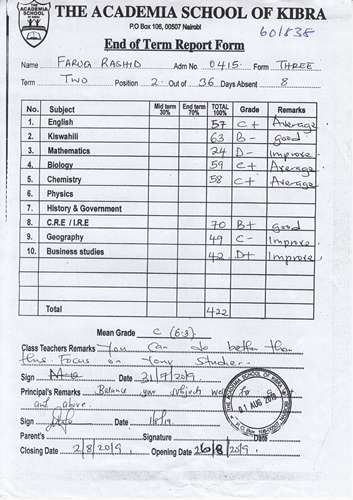 THE ACADEMIA SCHOOL OF KIBRA
P.O Box 106, 00507 Nairobi
60/838
End of Term Report Form
Name FARUQ RASHID Adm No. 0415. Form THREE
Term TWO Position 2. Out of 36 Days Absent 8
No. Subject Mid term 30% End term 70% TOTAL 100% Grade Remarks
1. English 57 C+ Average
2. Kiswahili 63 B- Good
3. Mathematics 24 D- Improve
4. Biology 59 C+ Average
5. Chemistry 58 C+ Average
6. Physics
7. History & Government
8. C.R.E / I.R.E 70 B+ Good
9. Geography 49 C- Improve
10. Business studies 42 D+ Improve
Total 422
Mean Grade C (6.3)
Class Teachers Remarks You can do better than
this. Focus on your studies.
Sign Date 31/7/2019
Principal's Remarks Balance your subjects well
and above.
Sign Date 1/8/19.
Parent's Signature Date
Closing Date 2/8/2019. Opening Date 26/8/2019.
THE ACADEMIA SCHOOL OF KIBRA
01 AUG 2019